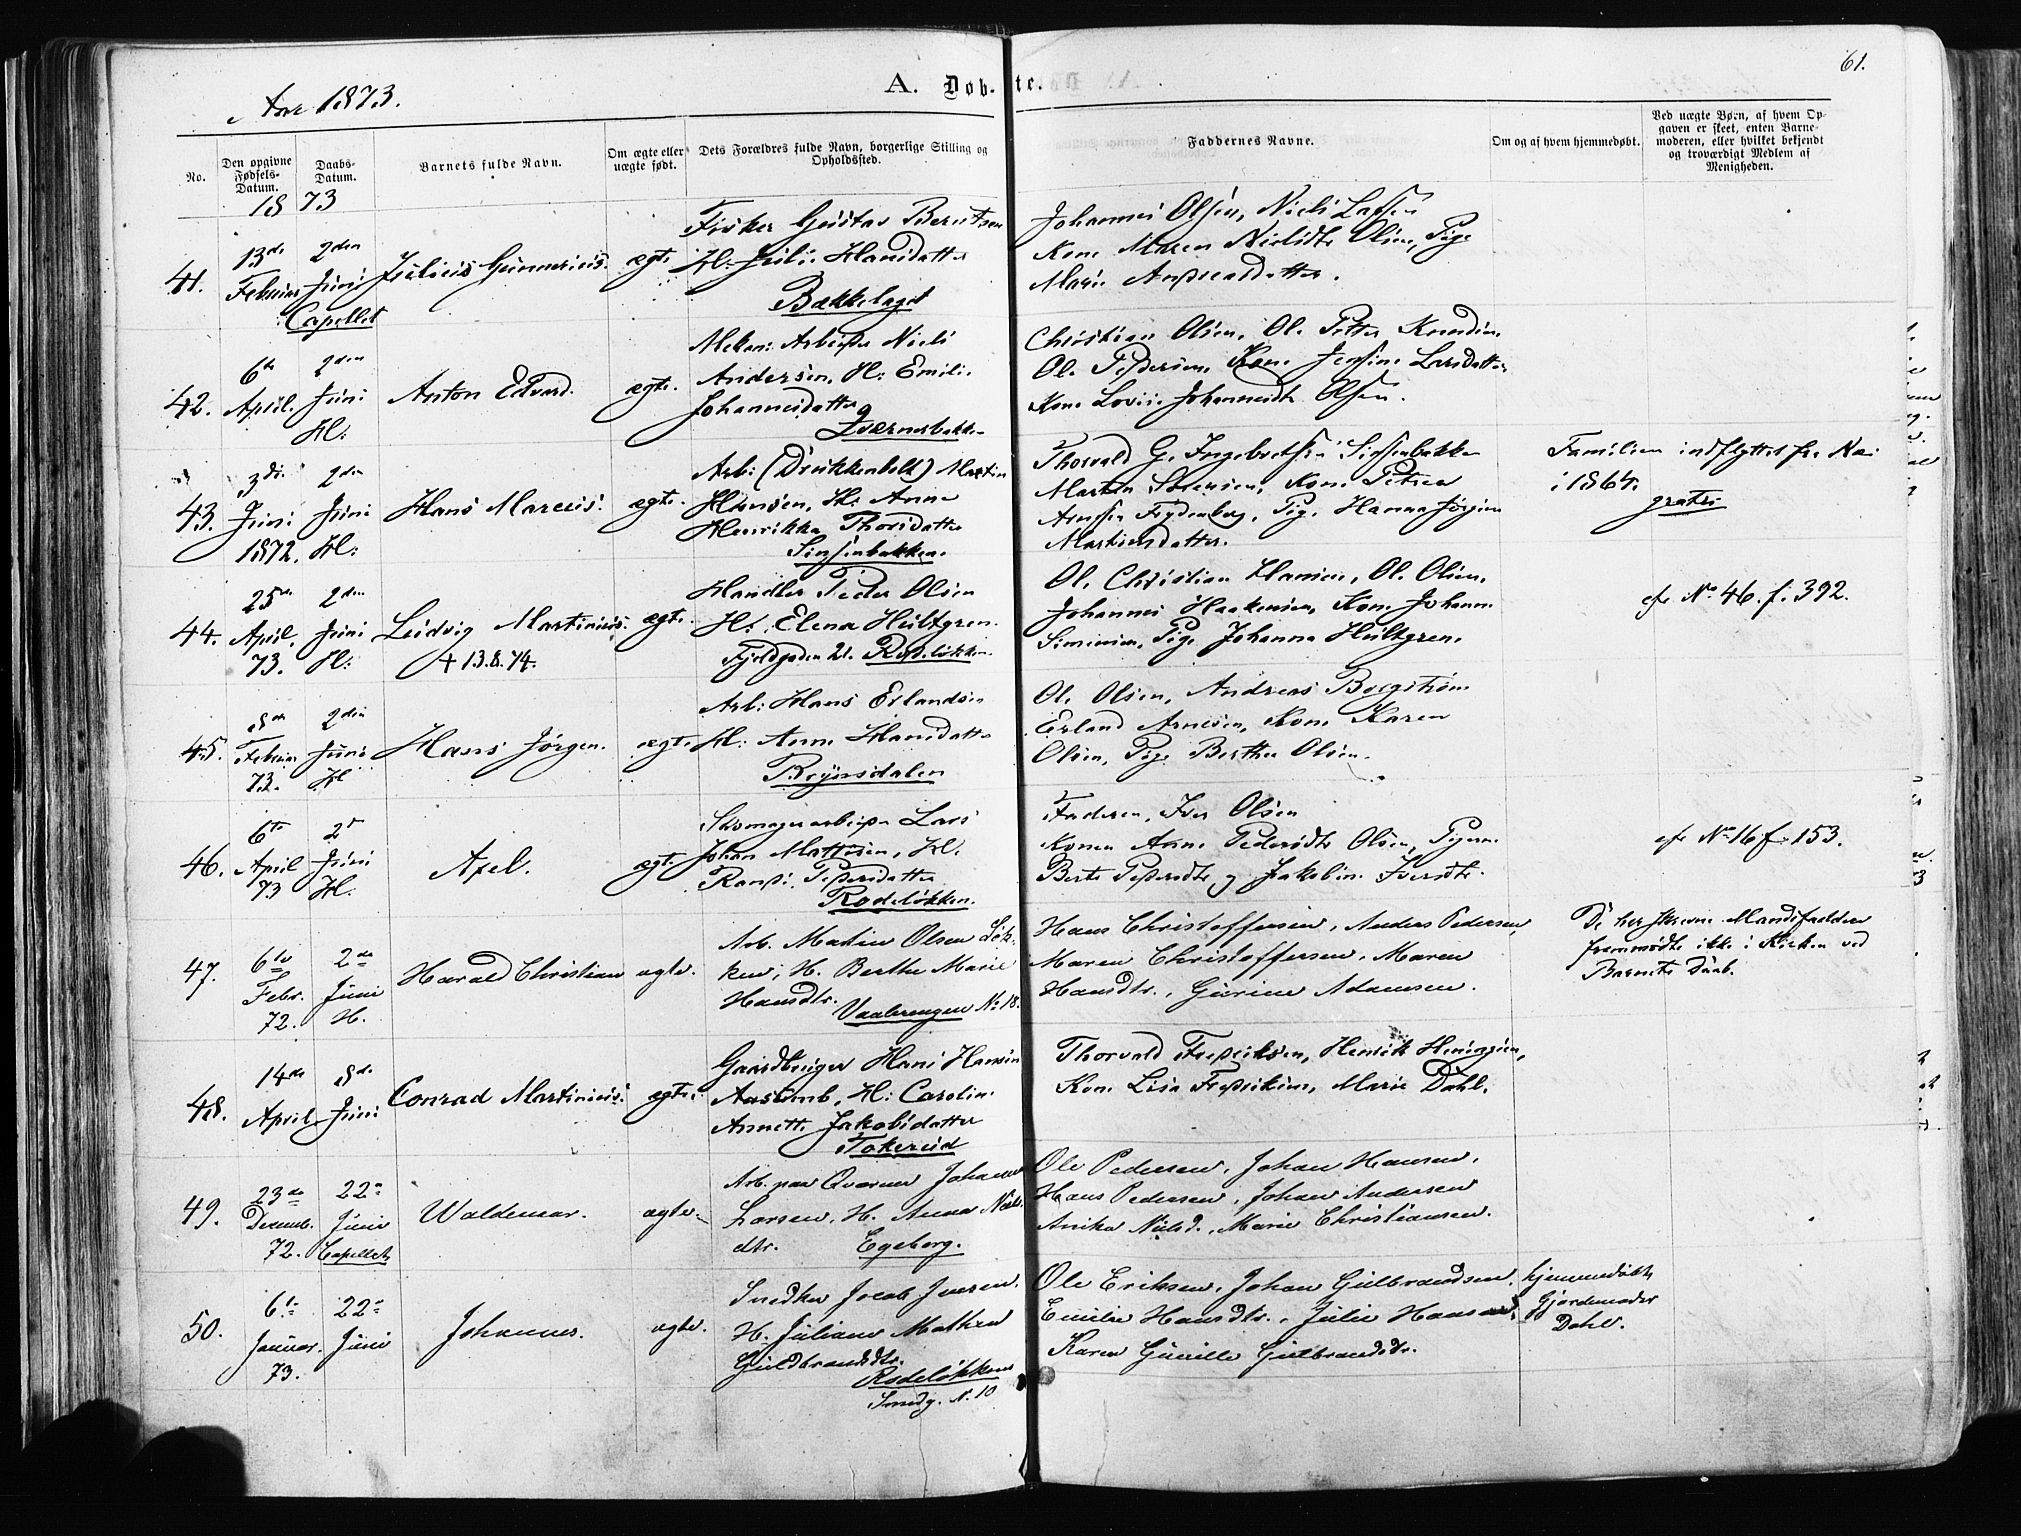 61.
Aar 1873.
A. Døb-te.
No.
Den opgivne Fødsels-Datum.
Daabs-Datum.
Barnets fulde Navn.
Om ægte eller uægte født.
Dets Forældres fulde Navn, borgerlige Stilling og Opholdssted.
Faddernes Navne.
Om og af hvem hjemmedøbt.
Ved uægte Børn, af hvem Opgaven er skeet, enten Barnemoderen, eller hvilket bekjendt og troværdigt Medlem af Menigheden.
1873
41.
13de Februar
2den Juni
Capellet
Julius Gunnerius.
ægte
Fisker Gustav Berntsen
H: Julie Hansdatter
Bækkelaget
Johannes Olsen, Niels Larsen
Kone Maren Nielsdtr Olsen, Pige
Marie Andreasdatter.
42.
6te April.
2den Juni
H:
Anton Edvard.
ægte.
Mekan: Arbeider Niels
Andersen, H: Emilie
Johannesdatter
Kværnerbakken
Christian Olsen, Ole Petter Knudsen
Ole Pedersen, Kone Jensine Larsdatter
Kone Lovise Johannesdt. Olsen.
43.
3die Juni 1872.
2den Juni
H:
Hans Marcus.
ægte.
Arb: (Drukkenbolt) Martin
Hansen, H: Anne
Henrikke Thorsdatter
Sinsenbakken.
Thorvald G. Ingebretsen Sinsenbakken
Martin Sørensen, Kone Petrea
Arnesen Frydenberg, Pige Hanna Jørgine
Martinsdatter.
Familien indflyttet fra Næs
i 1864.
gratis
44.
25de April. 73.
2den Juni
H:
Ludvig Martinius.
+ 13.8.74.
ægte.
Handler Peder Olsen
H: Elena Hultgren.
Fjeldgaden 21. Rodeløkken.
Ole Christian Hansen, Ole Olsen,
Johannes Haakensen, Kone Johanne
Simensen, Pige Johanna Hultgren.
cfr No 46. f. 392.
45.
8de Februar 73.
2den Juni
H
Hans Jørgen.
ægte
Arb: Hans Erlandsen
H: Anne Hansdatter
Brynsdalen
Ole Olsen, Andreas Borgstrøm
Erland Arnesen, Kone Karen
Olsen, Pige Berthe Olsen.
46.
6te April 73
2d Juni
H.
Axel.
ægte
Skomagerarbeider Lars
Johan Mattisen, H.
Randi Pedersdatter
Rodeløkken.
Faderen, Iver Olsen
Konen Anne Pedersdtr Olsen, Pigerne
Berte Pedersdtr og Jakobine Iversdtr.
cfr No 16 f. 153.
47.
6te Febr. 72.
2den Juni
H.
Harald Christian
ægte.
Arb. Martin Olsen Løkken; H. Berthe Marie
Hansdtr.
Vaalerengen No 18.
Hans Christoffersen, Anders Pedersen,
Maren Christoffersen, Maren
Hansdtr., Gurine Adamsen.
De her skrevne Mandsfaddere
fremmødte ikke i Kirken ved
Barnets Daab.
48.
14de April
8de Juni
Conrad Martinius.
ægte.
Gaardbruger Hans Hansen
H: Caroline
Annette Jakobsdatter
Tokerud
Thorvald Fredriksen, Henrik Henigsen,
Kone Lisa Fredriksen, Marie Dahl.
49.
23de Decemb. 72.
22de Juni
Capellet
Waldemar.
ægte.
Arb. paa Qværner Johannes
Larsen, H. Anna Nielsdtr.
Egeberg.
Ole Pedersen, Johan Hansen,
Hans Pedersen, Johan Andersen
Anika Nielsd., Marie Christiansen.
50.
6te Januar. 73.
22de Juni
Johannes.
ægte.
Snedker Jacob Jensen.
H. Juliane Mathea
Guldbrandsdtr.
Rodeløkken
Smedg. N. 10
Ole Eriksen, Johan Gulbrandsen
Emilie Hansdtr., Julie Hansen,
Karen Gunille Gulbrandsdtr.
hjemmedøbt
Gjordemoder
Dahl.